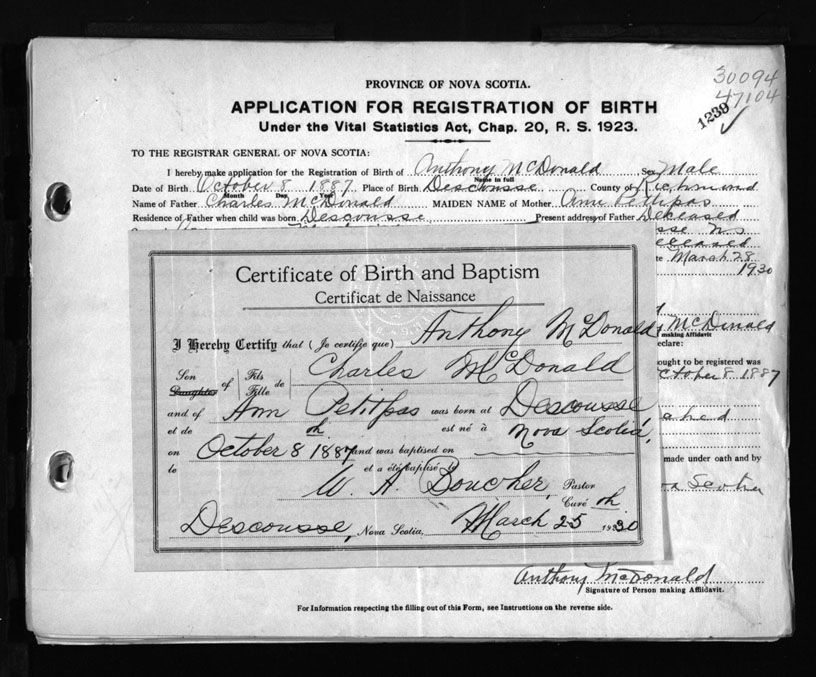 30094
47104
1239
PROVINCE OF NOVA SCOTIA.
APPLICATION FOR REGISTRATION OF BIRTH
Under the Vital Statistics Act, Chap. 20, R. S. 1923.
TO THE REGISTRAR GENERAL OF NOVA SCOTIA:
I hereby make application for the Registration of Birth of Anthony McDonald Sex Male
Name in full
Date of Birth October 8 1887 Place of Birth Descousse County of Richmond
Month Day Year
Name of Father Charles McDonald MAIDEN NAME of Mother Ann Petitpas
Residence of Father when child was born Descousse Present address of Father Deceased
sse N.S.
Deceased
te March 28
1930
Certificate of Birth and Baptism
Certificat de Naissance
I Hereby Certify that (Je certifie que) Anthony McDonald
McDonald
making Affidavit
eclare:
Son Daughter of Fils Fille de Charles McDonald
ought to be registered was
October 8 1887
and of Ann Petitpas was born at Descousse
et de est né à Nova Scotia,
on October 8 1887 and was baptised on
made under oath and by
te et a été baptisé
W. A. Boucher, Pastor
Curé
Descousse, Nova Scotia, March 25 1930
Anthony McDonald
Signature of Person making Affidavit.
For Information respecting the filling out of this Form, see Instructions on the reverse side.